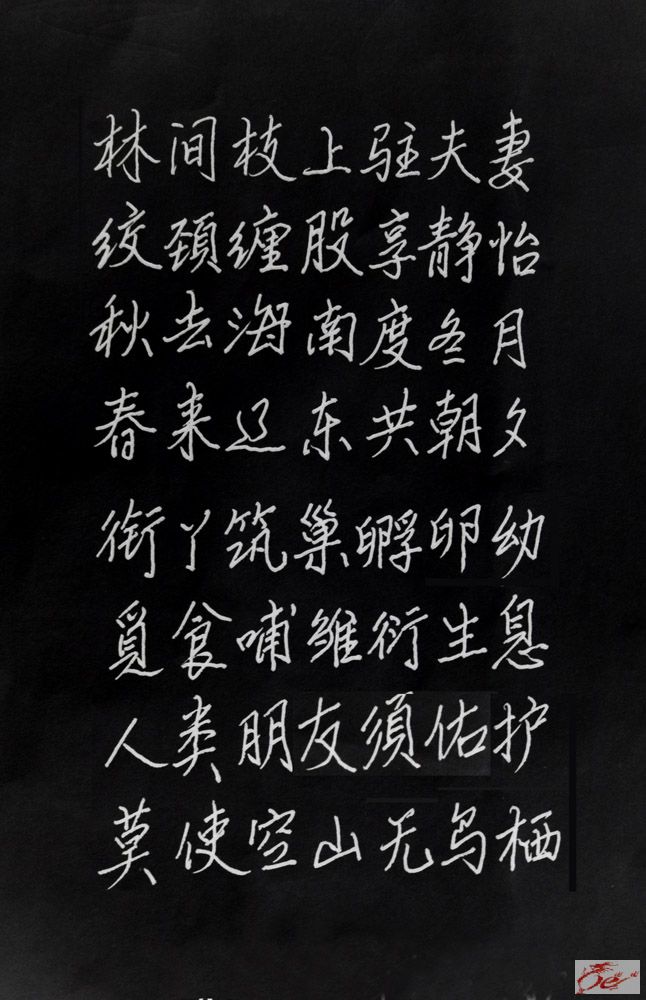 林间枝上驻夫妻
绞颈缠股享静怡
秋去海南度冬月
春来辽东共朝夕
衔丫筑巢孵卵幼
觅食哺雏衍生息
人类朋友须佑护
莫使空山无鸟栖